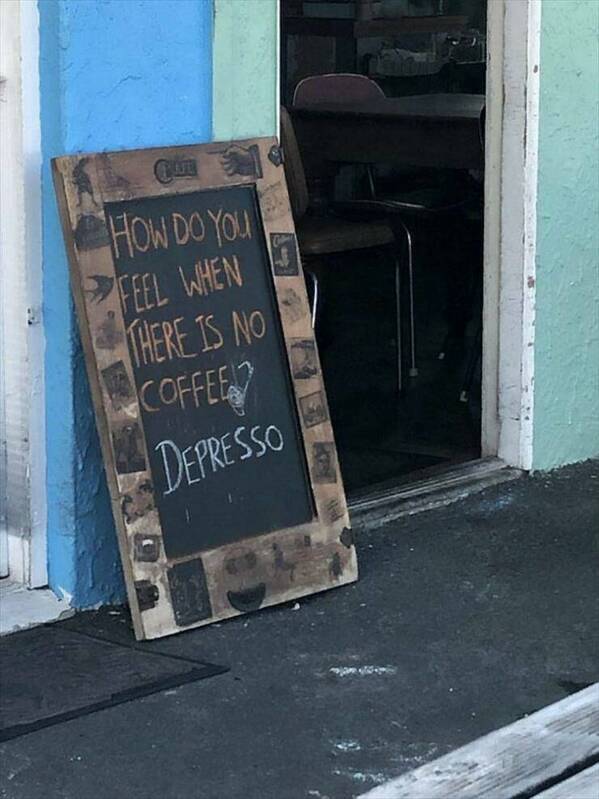 HOW DO YOU
FEEL WHEN
THERE IS NO
COFFEE?
DEPRESSO